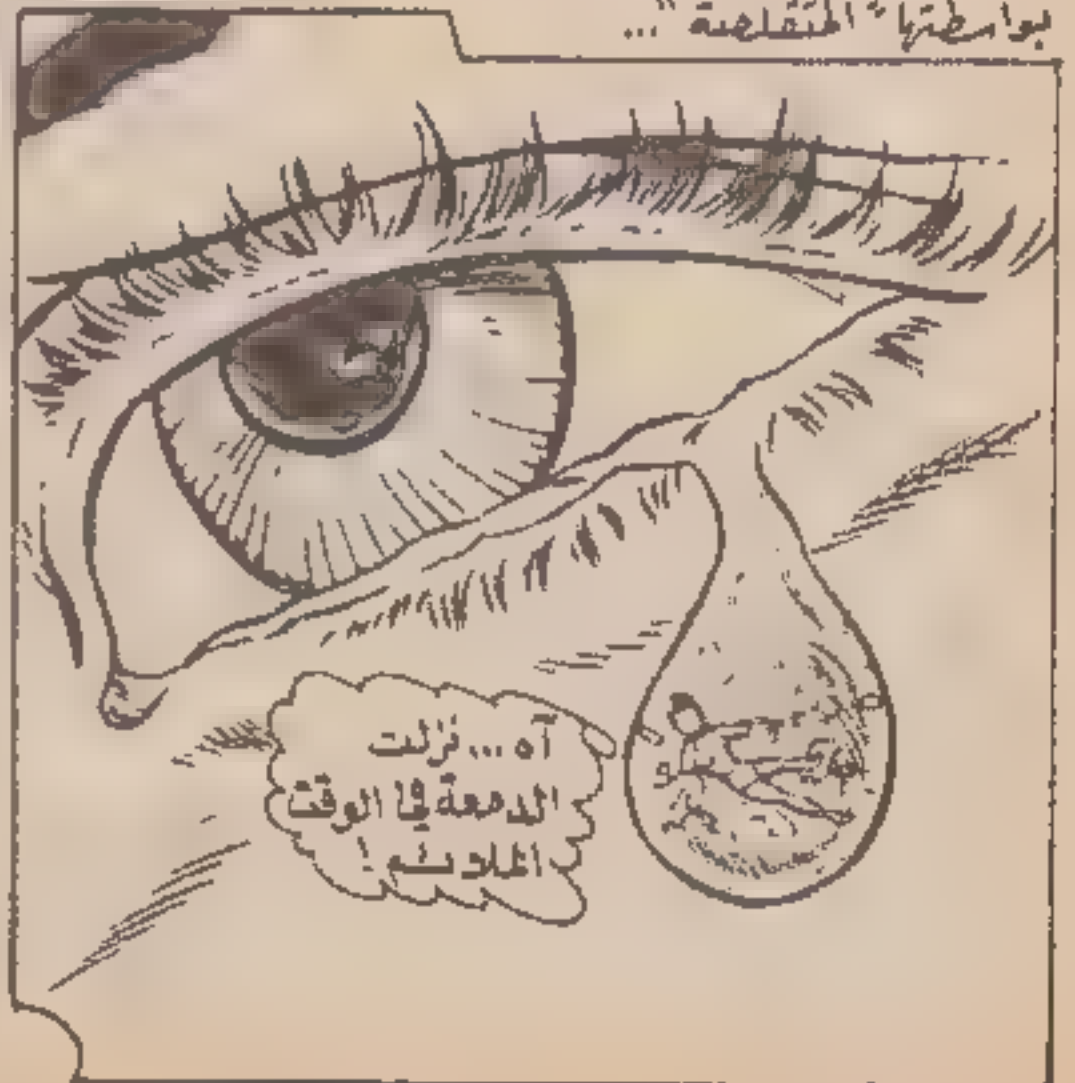 بواسطتها "المتقلصة"...
آه... نزلت
الدمعة في الوقت
الملائم!